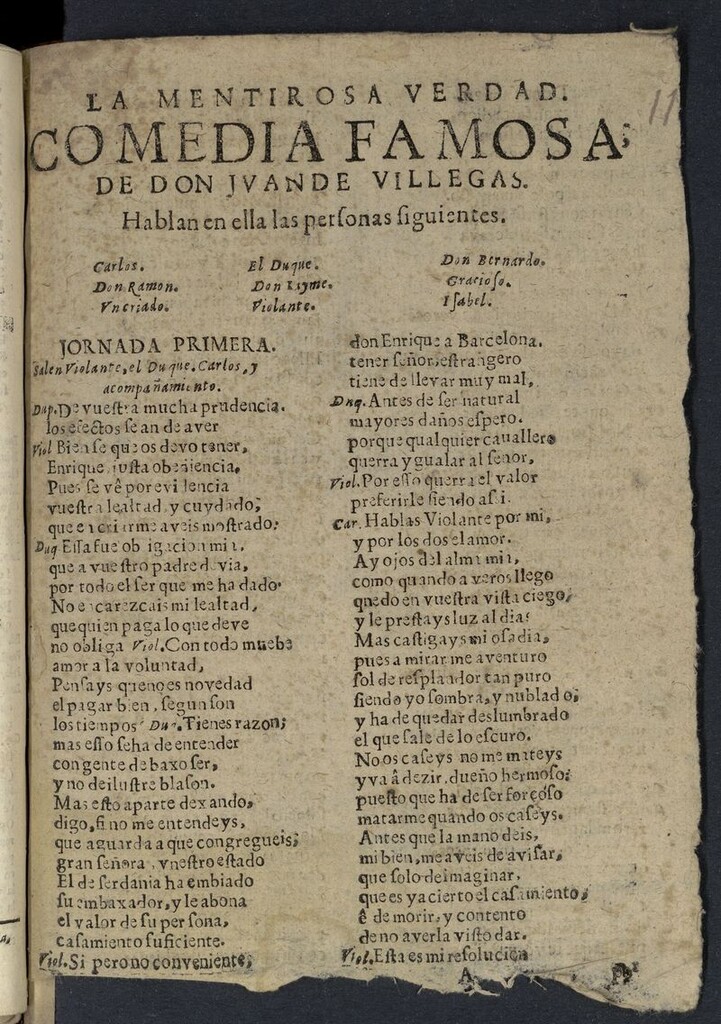 LA MENTIROSA VERDAD.
COMEDIA FAMOSA;
DE DON JVANDE VILLEGAS.
Hablan en ella las perſonas ſiguientes.
11
Carlos. El Duque. Don Bernardo.
Don Ramon. Don Layme. Gracioſo.
Vn criado. Violante. Iſabel.
JORNADA PRIMERA.
Salen Violante, el Duque, Carlos, y
acompañamiento.
Dup. De vueſtra mucha prudencia.
los efectos ſe an de aver
Viol Bien ſe que os devo tener,
Enrique juſta obediencia.
Pues ſe vê por evidencia
vueſtra lealtad, y cuydado;
que en criarme aveis moſtrado.
Duq Eſſa fue obligacion mia,
que a vueſtro padre devia,
por todo el ſer que me ha dado.
No encarezcais mi lealtad,
que quien paga lo que deve
no obliga Viol. Con todo muebe
amor a la voluntad,
Penſays que no es novedad
el pagar bien, ſegun ſon
los tiempos Duq. Tienes razon;
mas eſſo ſeha de entender
con gente de baxo ſer,
y no de iluſtre blaſon.
Mas eſto aparte dexando,
digo, ſi no me entendeys,
que aguarda a que congregueis;
gran ſeñora, vueſtro eſtado
El de ſerdania ha embiado
ſu embaxador, y le abona
el valor de ſu perſona,
caſamiento ſuficiente.
Viol. Si pero no conveniente,
don Enrique a Barcelona.
tener ſeñor, eſtrangero
tiene de llevar muy mal,
Duq. Antes de ſer natural
mayores daños eſpero.
porque qualquier cauallero
querra ygualar al ſeñor,
Viol. Por eſſo querra el valor
preferirle ſiendo aſsi.
Car. Hablas Violante por mi,
y por los dos el amor.
Ay ojos del alma mia,
como quando a veros llego
quedo en vueſtra viſta ciego,
y le preſtays luz al dia:
Mas caſtigays mi oſadia,
pues a mirarme aventuro
ſol de reſplandor tan puro
ſiendo yo ſombra, y nublado;
y ha de quedar deslumbrado
el que ſale de lo eſcuro.
No os caſeys no me mateys
y va â dezir, dueño hermoſo;
pueſto que ha de ſer forçoſo
matarme quando os caſeys.
Antes que la mano deis,
mi bien, me aveis de aviſar,
que ſolo de imaginar,
que es ya cierto el caſamiento,
ê de morir, y contento
de no averla viſto dar.
Viol. Eſta es mi reſolucion
A